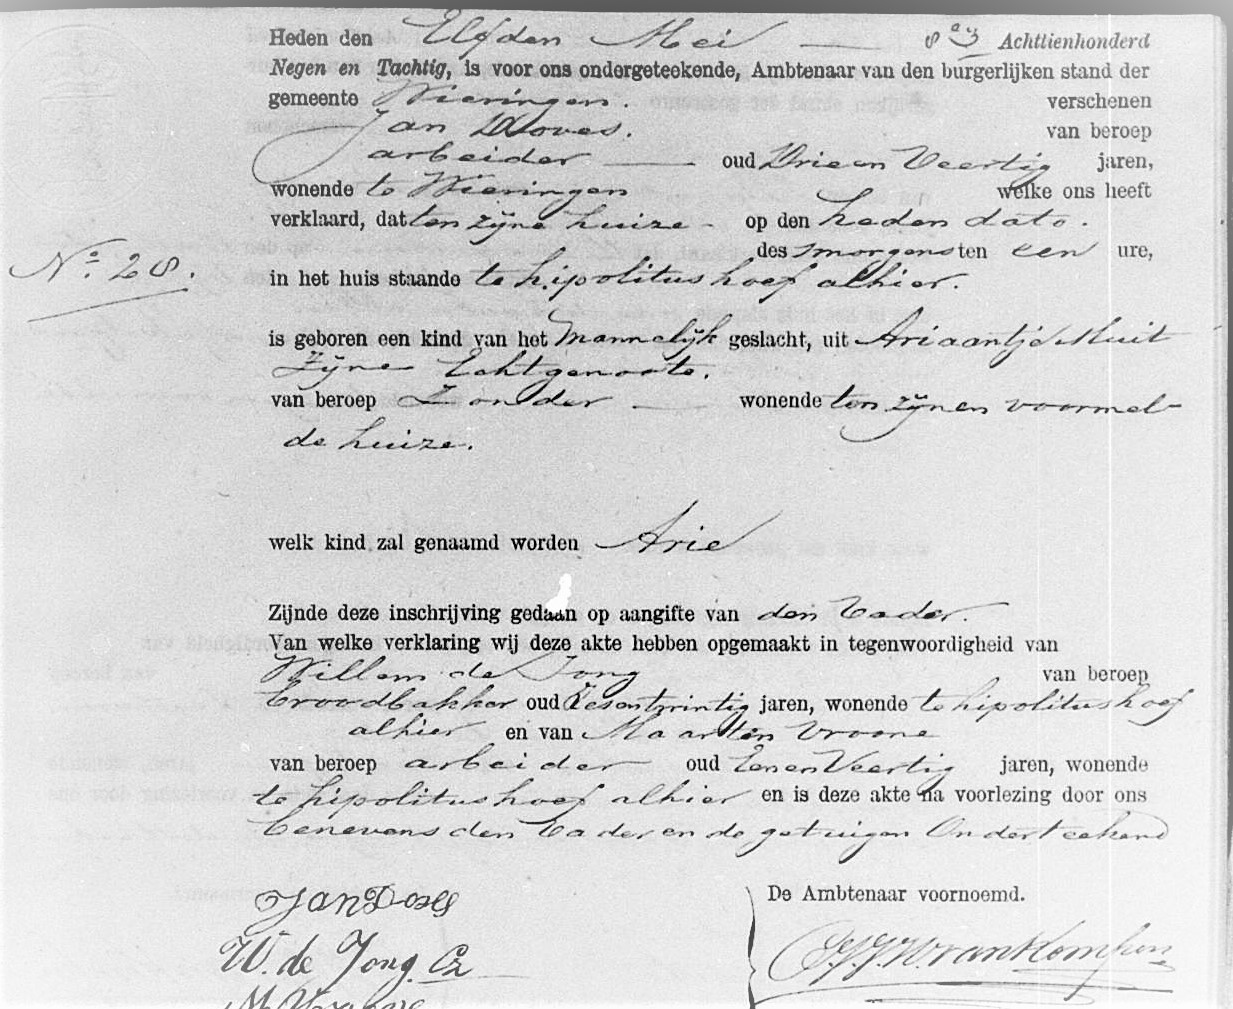 Heden den Elfden Mei Achttienhonderd
Negen en Tachtig, is voor ons ondergeteekende, Ambtenaar van den burgerlijken stand der
gemeente Wieringen. verschenen
Jan Doves. van beroep
arbeider oud Drieen Veertig jaren,
wonende te Wieringen welke ons heeft
verklaard, dat ten zijne huize op den heden dato.
des smorgens ten een ure,
No. 28.
in het huis staande te hipolitushoef alhier.
is geboren een kind van het Mannelijk geslacht, uit Ariaantje Muit
zijne Echtgenoote.
van beroep Zonder wonende ten zijnen voormel-
de huize.
welk kind zal genaamd worden Arie
Zijnde deze inschrijving gedaan op aangifte van den Vader.
Van welke verklaring wij deze akte hebben opgemaakt in tegenwoordigheid van
Willem de Jong van beroep
broodbakker oud jaren, wonende te hipolitushoef
alhier en van Maarten Vroone
van beroep arbeider oud Eenen Veertig jaren, wonende
te hipolitushoef alhier en is deze akte na voorlezing door ons
benevens den Vader en de getuigen Onderteekend
De Ambtenaar voornoemd.
Jan Doves
W. de Jong Cz